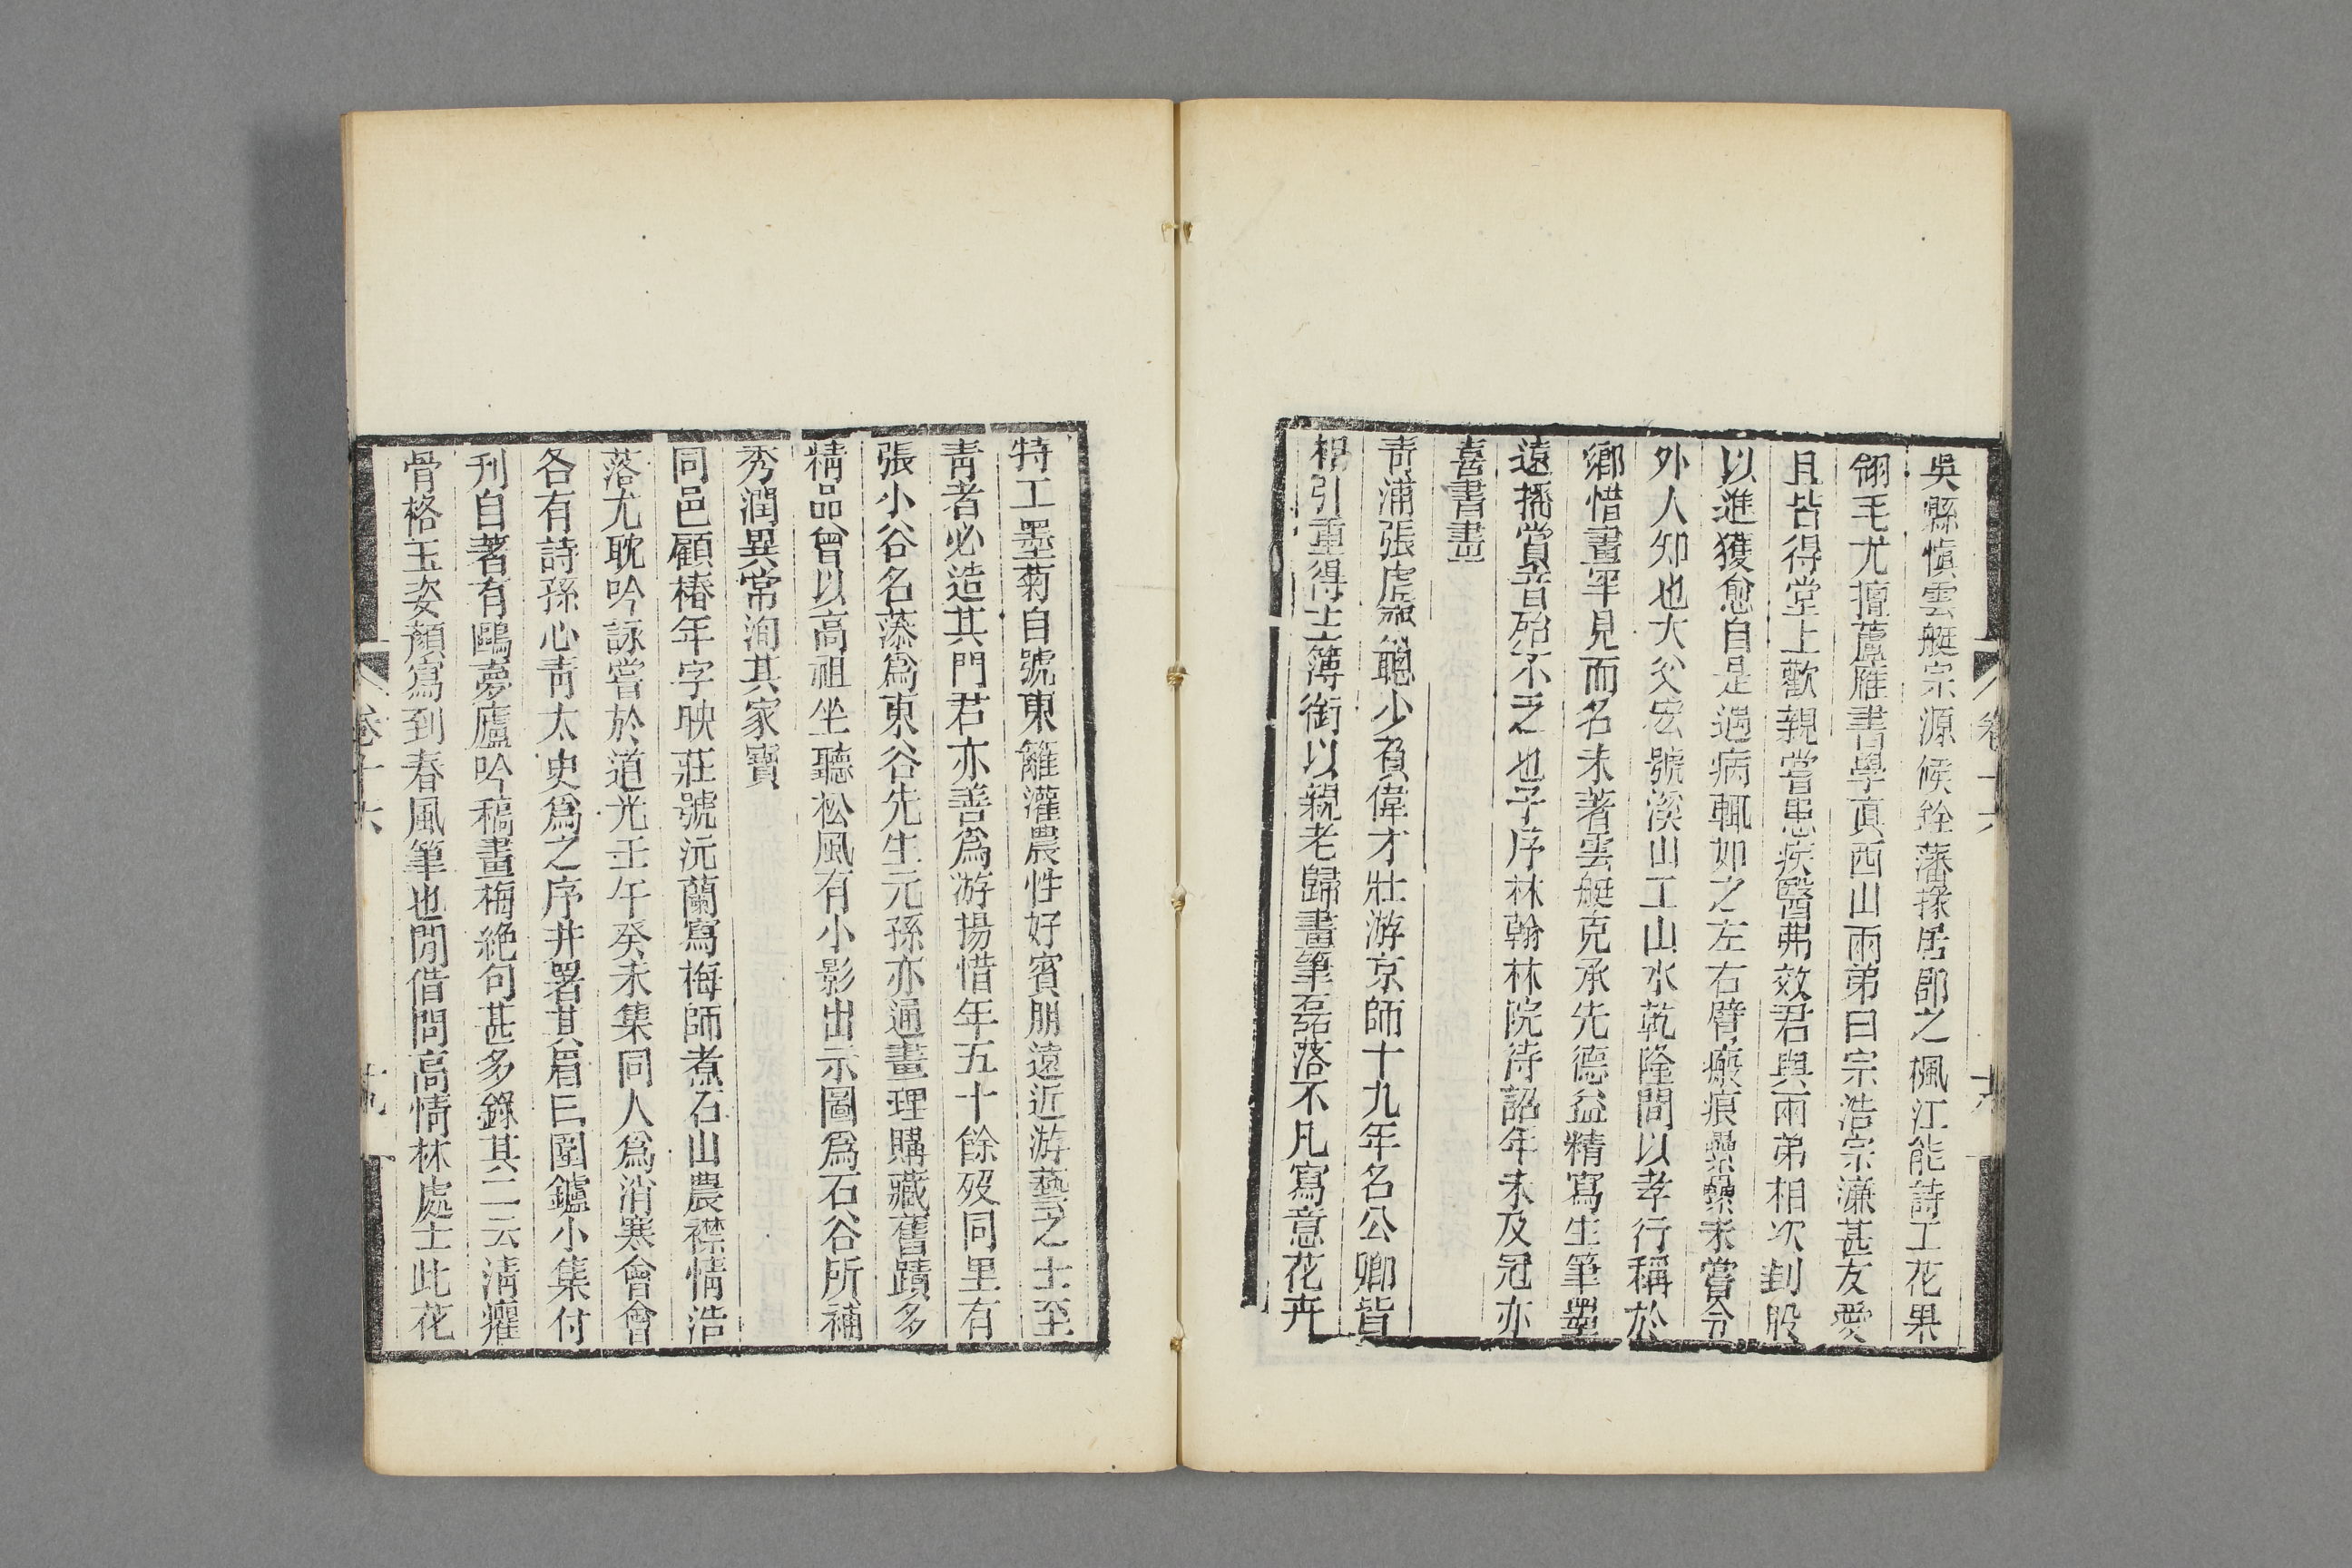 吳縣愼雲艇宗源候銓藩掾居郡之楓江能詩工花果
翎毛尤擅蘆雁書學眞西山兩弟曰宗浩宗濂甚友愛
且皆得堂上歡親嘗患疾醫弗效君與兩弟相次刲股
以進獲愈自是遇病輒如之左右臂瘢痕纍纍未嘗令
外人知也大父宏號溪山工山水乾隆間以孝行稱於
鄉惜畫罕見而名未著雲艇克承先德益精寫生筆墨
遠播賞音殆不乏也子序林翰林院待詔年未及冠亦
喜書畫
靑浦張虎癡聰少負偉才壯游京師十九年名公卿皆
相引重得士簿銜以親老歸畫筆磊落不凡寫意花卉
特工墨菊自號東籬灌農性好賓朋遠近游藝之士至
靑者必造其門君亦善爲游揚惜年五十餘歿同里有
張小谷名蓚爲東谷先生元孫亦通畫理購藏舊蹟多
精品曾以高祖坐聽松風有小影出示圖爲石谷所補
秀潤異常洵其家寶
同邑顧椿年字映莊號沅蘭寫梅師煮石山農襟情浩
落尤耽吟詠嘗於道光壬午癸未集同人爲消寒會會
各有詩孫心靑太史爲之序并署其眉曰圍鑪小集付
刊自著有鷗夢廬吟稿畫梅絶句甚多錄其二云淸癯
骨格玉姿顏寫到春風筆也閒借問高情林處士此花
卷十六
十九